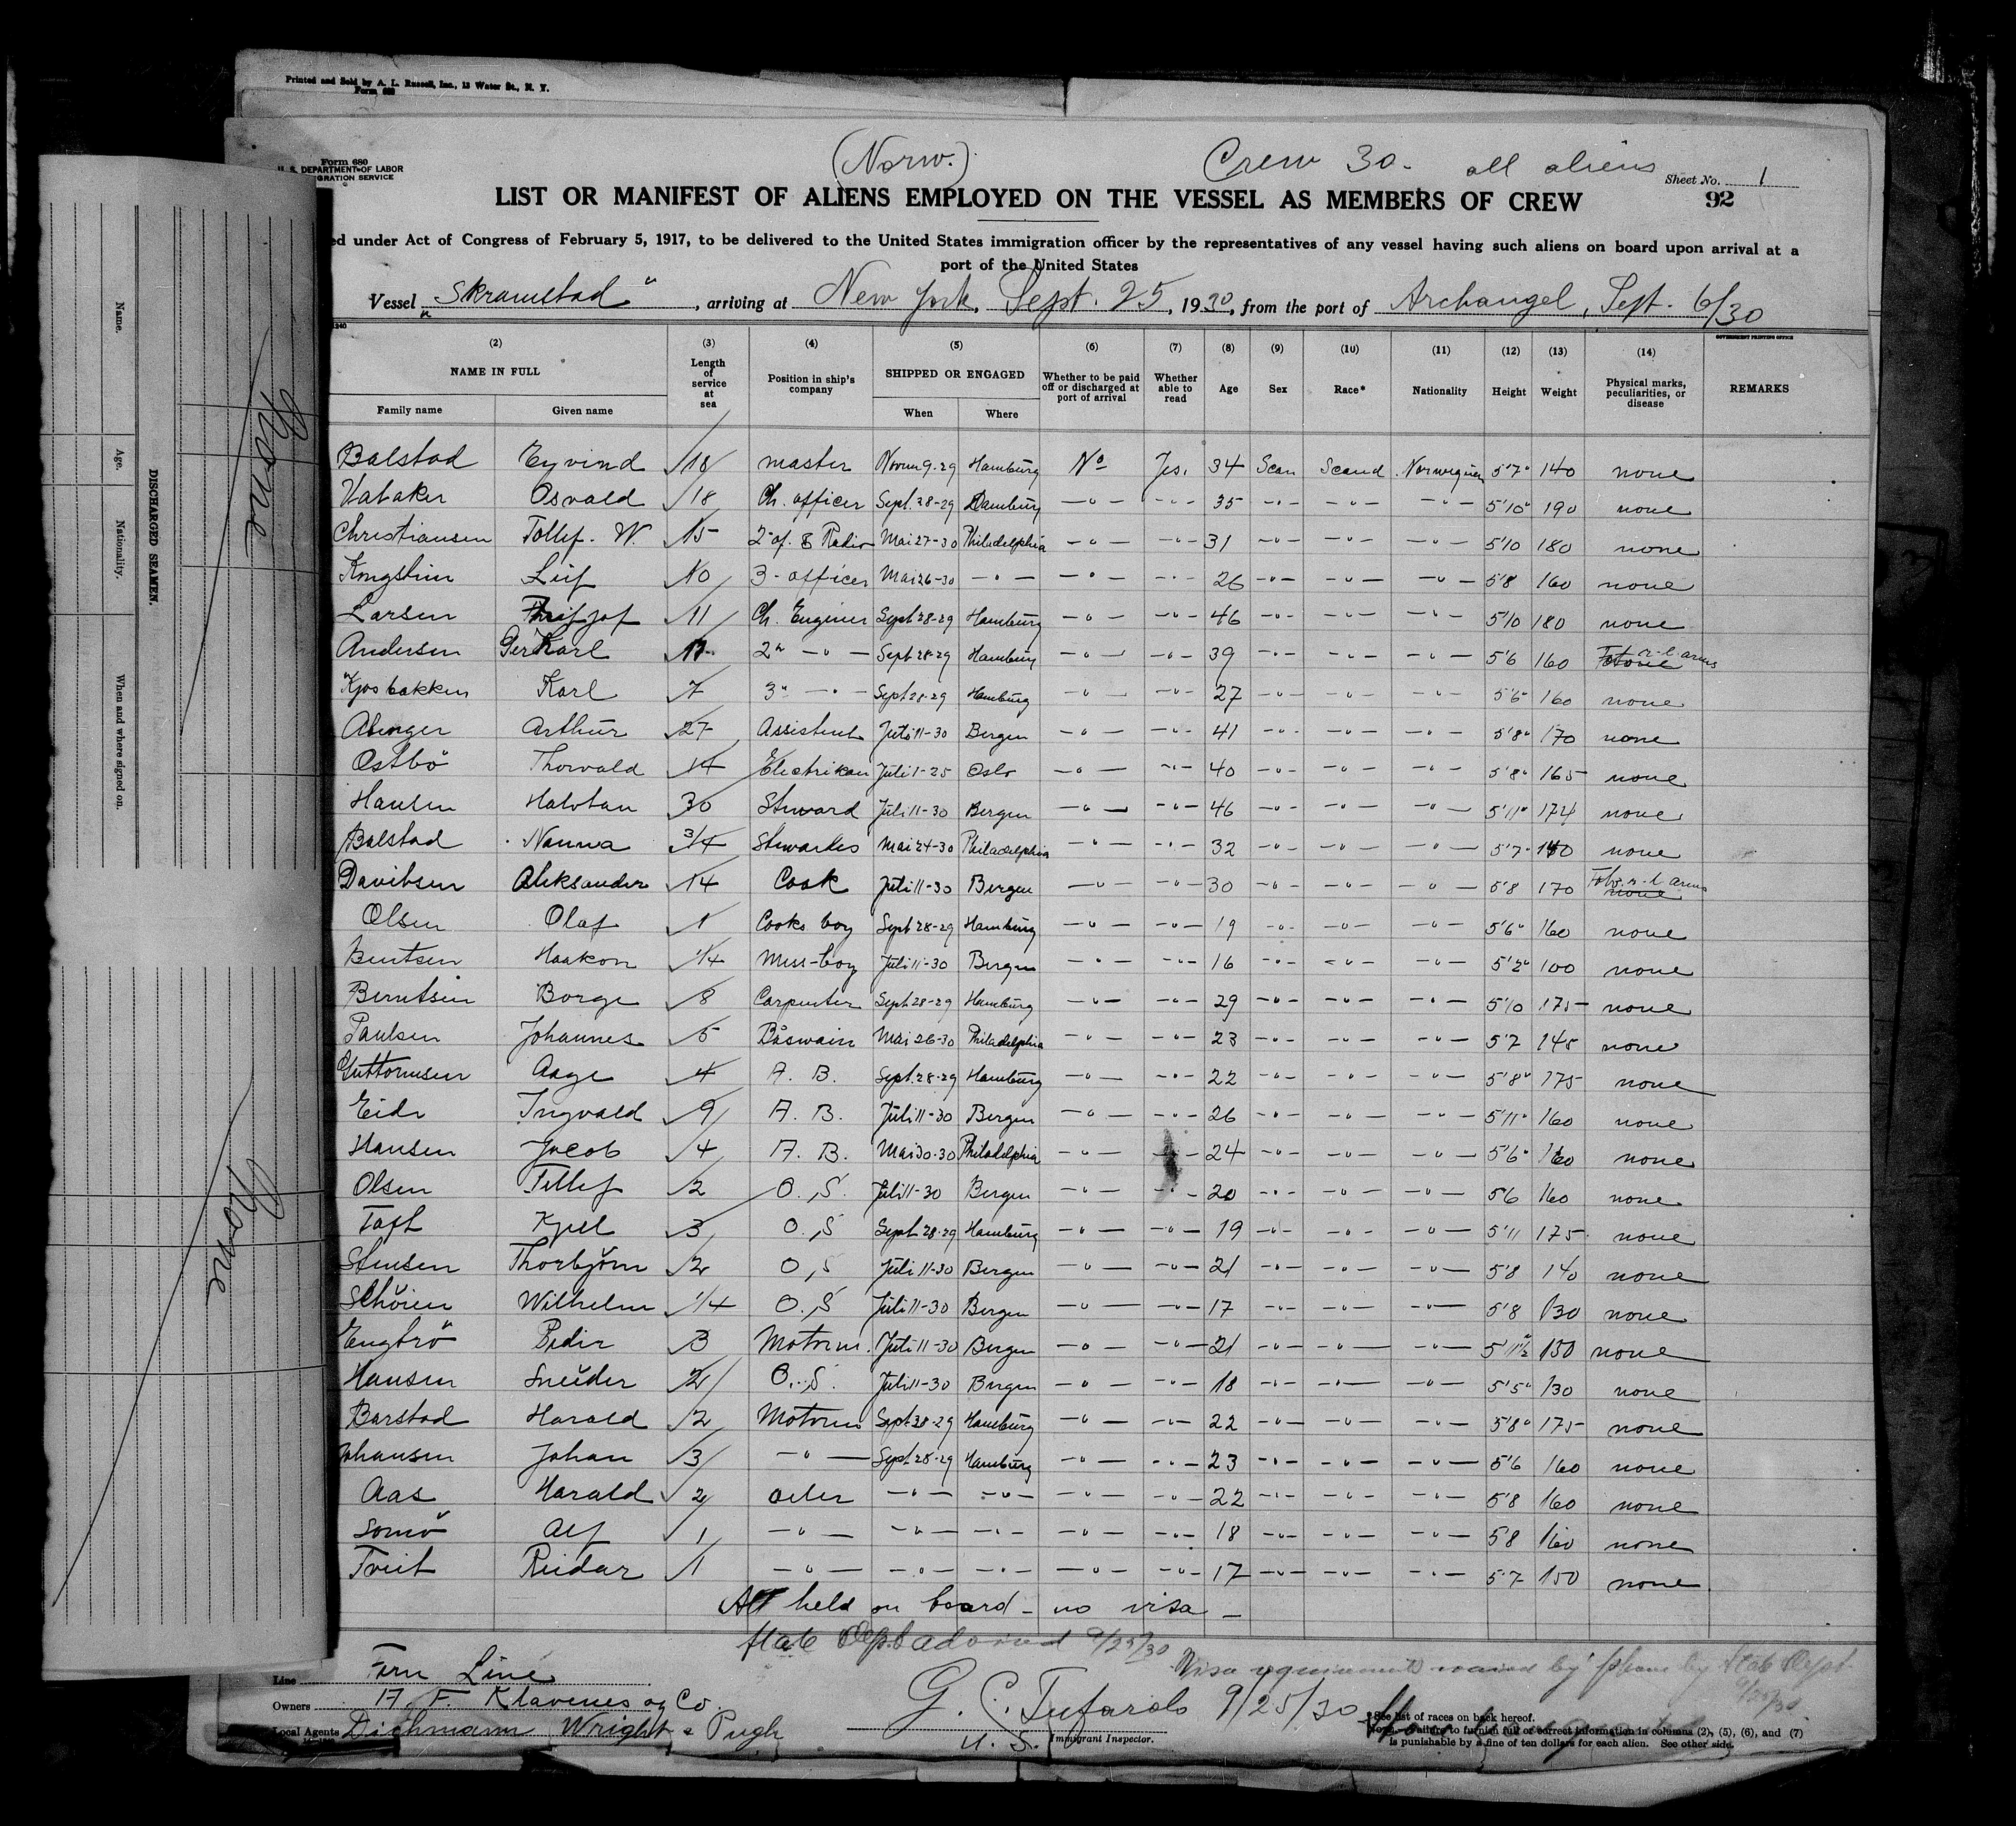 Printed and Sold by A. L. Russell, Inc., 13 Water St., N. Y.
Form 680
(Norw.)
Crew 30. all aliens
Form 680
U. S. DEPARTMENT OF LABOR
IMMIGRATION SERVICE
Sheet No. 1
LIST OR MANIFEST OF ALIENS EMPLOYED ON THE VESSEL AS MEMBERS OF CREW
92
ed under Act of Congress of February 5, 1917, to be delivered to the United States immigration officer by the representatives of any vessel having such aliens on board upon arrival at a
port of the United States
Vessel "Skramstad", arriving at New York, Sept. 25, 1930, from the port of Archangel, Sept. 6/30
1240
GOVERNMENT PRINTING OFFICE
(2) (3) (4) (5) (6) (7) (8) (9) (10) (11) (12) (13) (14)
NAME IN FULL Length of service at sea Position in ship's company SHIPPED OR ENGAGED Whether to be paid off or discharged at port of arrival Whether able to read Age Sex Race* Nationality Height Weight Physical marks, peculiarities, or disease REMARKS
Family name Given name When Where
Balstad Eyvind 18 master Novem 9-29 Hamburg No Yes. 34 Scan Scand Norwegian 5'7" 140 none
Osvald 18 Ch. officer Sept. 28-29 Hamburg —"— -"- 35 -"- -"- -"- 5'10" 190 none
Christiansen Tollef. W. 15 2-of. & Radio Mai 27-30 Philadelphia —"— -"- 31 -"- -"- -"- 5'10 180 none
Leif 10 3-officer Mai 26-30 —"— —"— -"- 26 -"- -"- -"- 5'8 160 none
Larsen 11 Ch. Enginer Sept 28-29 Hamburg —"— -"- 46 -"- -"- -"- 5'10 180 none
Andersen Karl 2" —"— Sept 28-29 Hamburg —"— -"- 39 -"- -"- -"- 5'6 160 r-l. arms
Kjosbakken Karl 7 3" —"— Sept 28-29 Hamburg —"— -"- 27 -"- -"- -"- 5'6" 160 none
Arthur 27 Assistent Juli 11-30 Bergen —"— -"- 41 -"- -"- -"- 5'8" 170 none
Ostbö Thorvald 14 Electrikan Juli 1-25 Oslo —"— -"- 40 -"- -"- -"- 5'8" 165 none
Hansen Halvtan 30 Steward Juli 11-30 Bergen —"— -"- 46 -"- -"- -"- 5'11" 174 none
Balstad Nanna 3/4 Stewardes Mai 24-30 Philadelphia —"— -"- 32 -"- -"- -"- 5'7" 140 none
Davidsen Aleksander 14 Cook Juli 11-30 Bergen —"— -"- 30 -"- -"- -"- 5'8 170 r-l arms none
Olsen Olaf 1 Cooks boy Sept 28-29 Hamburg —"— -"- 19 -"- -"- -"- 5'6" 160 none
Bentsen Haakon 1/4 Mess-boy Juli 11-30 Bergen —"— -"- 16 -"- -"- -"- 5'2" 100 none
Berntsen Borge 8 Carpenter Sept 28-29 Hamburg —"— -"- 29 -"- -"- -"- 5'10 175 none
Paulsen Johannes 5 Båswain Mai 26-30 Philadelphia —"— -"- 23 -"- -"- -"- 5'7 145 none
Guttormsen Aage 4 A. B. Sept. 28-29 Hamburg —"— -"- 22 -"- -"- -"- 5'8" 175 none
Eide Ingvald 9 A. B. Juli 11-30 Bergen —"— -"- 26 -"- -"- -"- 5'11" 160 none
Hansen Jacob 4 A. B. Mai 30-30 Philadelphia —"— -"- 24 -"- -"- -"- 5'6" 160 none
Olsen Tellef 2 O, S. Juli 11-30 Bergen —"— -"- 20 -"- -"- -"- 5'6 160 none
Taft Kjell 3 O, S Sept 28-29 Hamburg —"— -"- 19 -"- -"- -"- 5'11 175 none
Stensen Thorbjörn 2 O, S Juli 11-30 Bergen —"— -"- 21 -"- -"- -"- 5'8 140 none
Schöien Wilhelm 1/4 O, S Juli 11-30 Bergen —"— -"- 17 -"- -"- -"- 5'8 130 none
Engbrö Peder 3 Motorm. Juli 11-30 Bergen —"— -"- 21 -"- -"- -"- 5'11½" 150 none
Hansen 2 O. S. Juli 11-30 Bergen —"— -"- 18 -"- -"- -"- 5'5" 130 none
Barstad Harald 2 Motorm Sept 28-29 Hamburg —"— -"- 22 -"- -"- -"- 5'8" 175 none
Johansen Johan 3 —"— Sept 28-29 Hamburg —"— -"- 23 -"- -"- -"- 5'6 160 none
Aas Harald 2 oiler —"— -"- —"— -"- 22 -"- -"- -"- 5'8 160 none
Somö Alf 1 —"— —"— -"- —"— -"- 18 -"- -"- -"- 5'8 160 none
Tveit Reidar 1 —"— —"— -"- —"— -"- 17 -"- -"- -"- 5'7 150 none
All held on board - no visa -
State Dept advised 9/25/30
Visa requirements waived by phone by State Dept 9/25/30
Line Fern Line
Owners A. F. Klavenes og Co.
Local Agents Dichmann Wright & Pugh
G. C. Tufarolo 9/25/30
U. S. Immigrant Inspector.
*See list of races on back hereof.
NOTE.—Failure to furnish full or correct information in columns (2), (5), (6), and (7)
is punishable by a fine of ten dollars for each alien. See other side.
DISCHARGED SEAMEN.
Name.
Age.
Nationality.
When and where signed on.
None
None